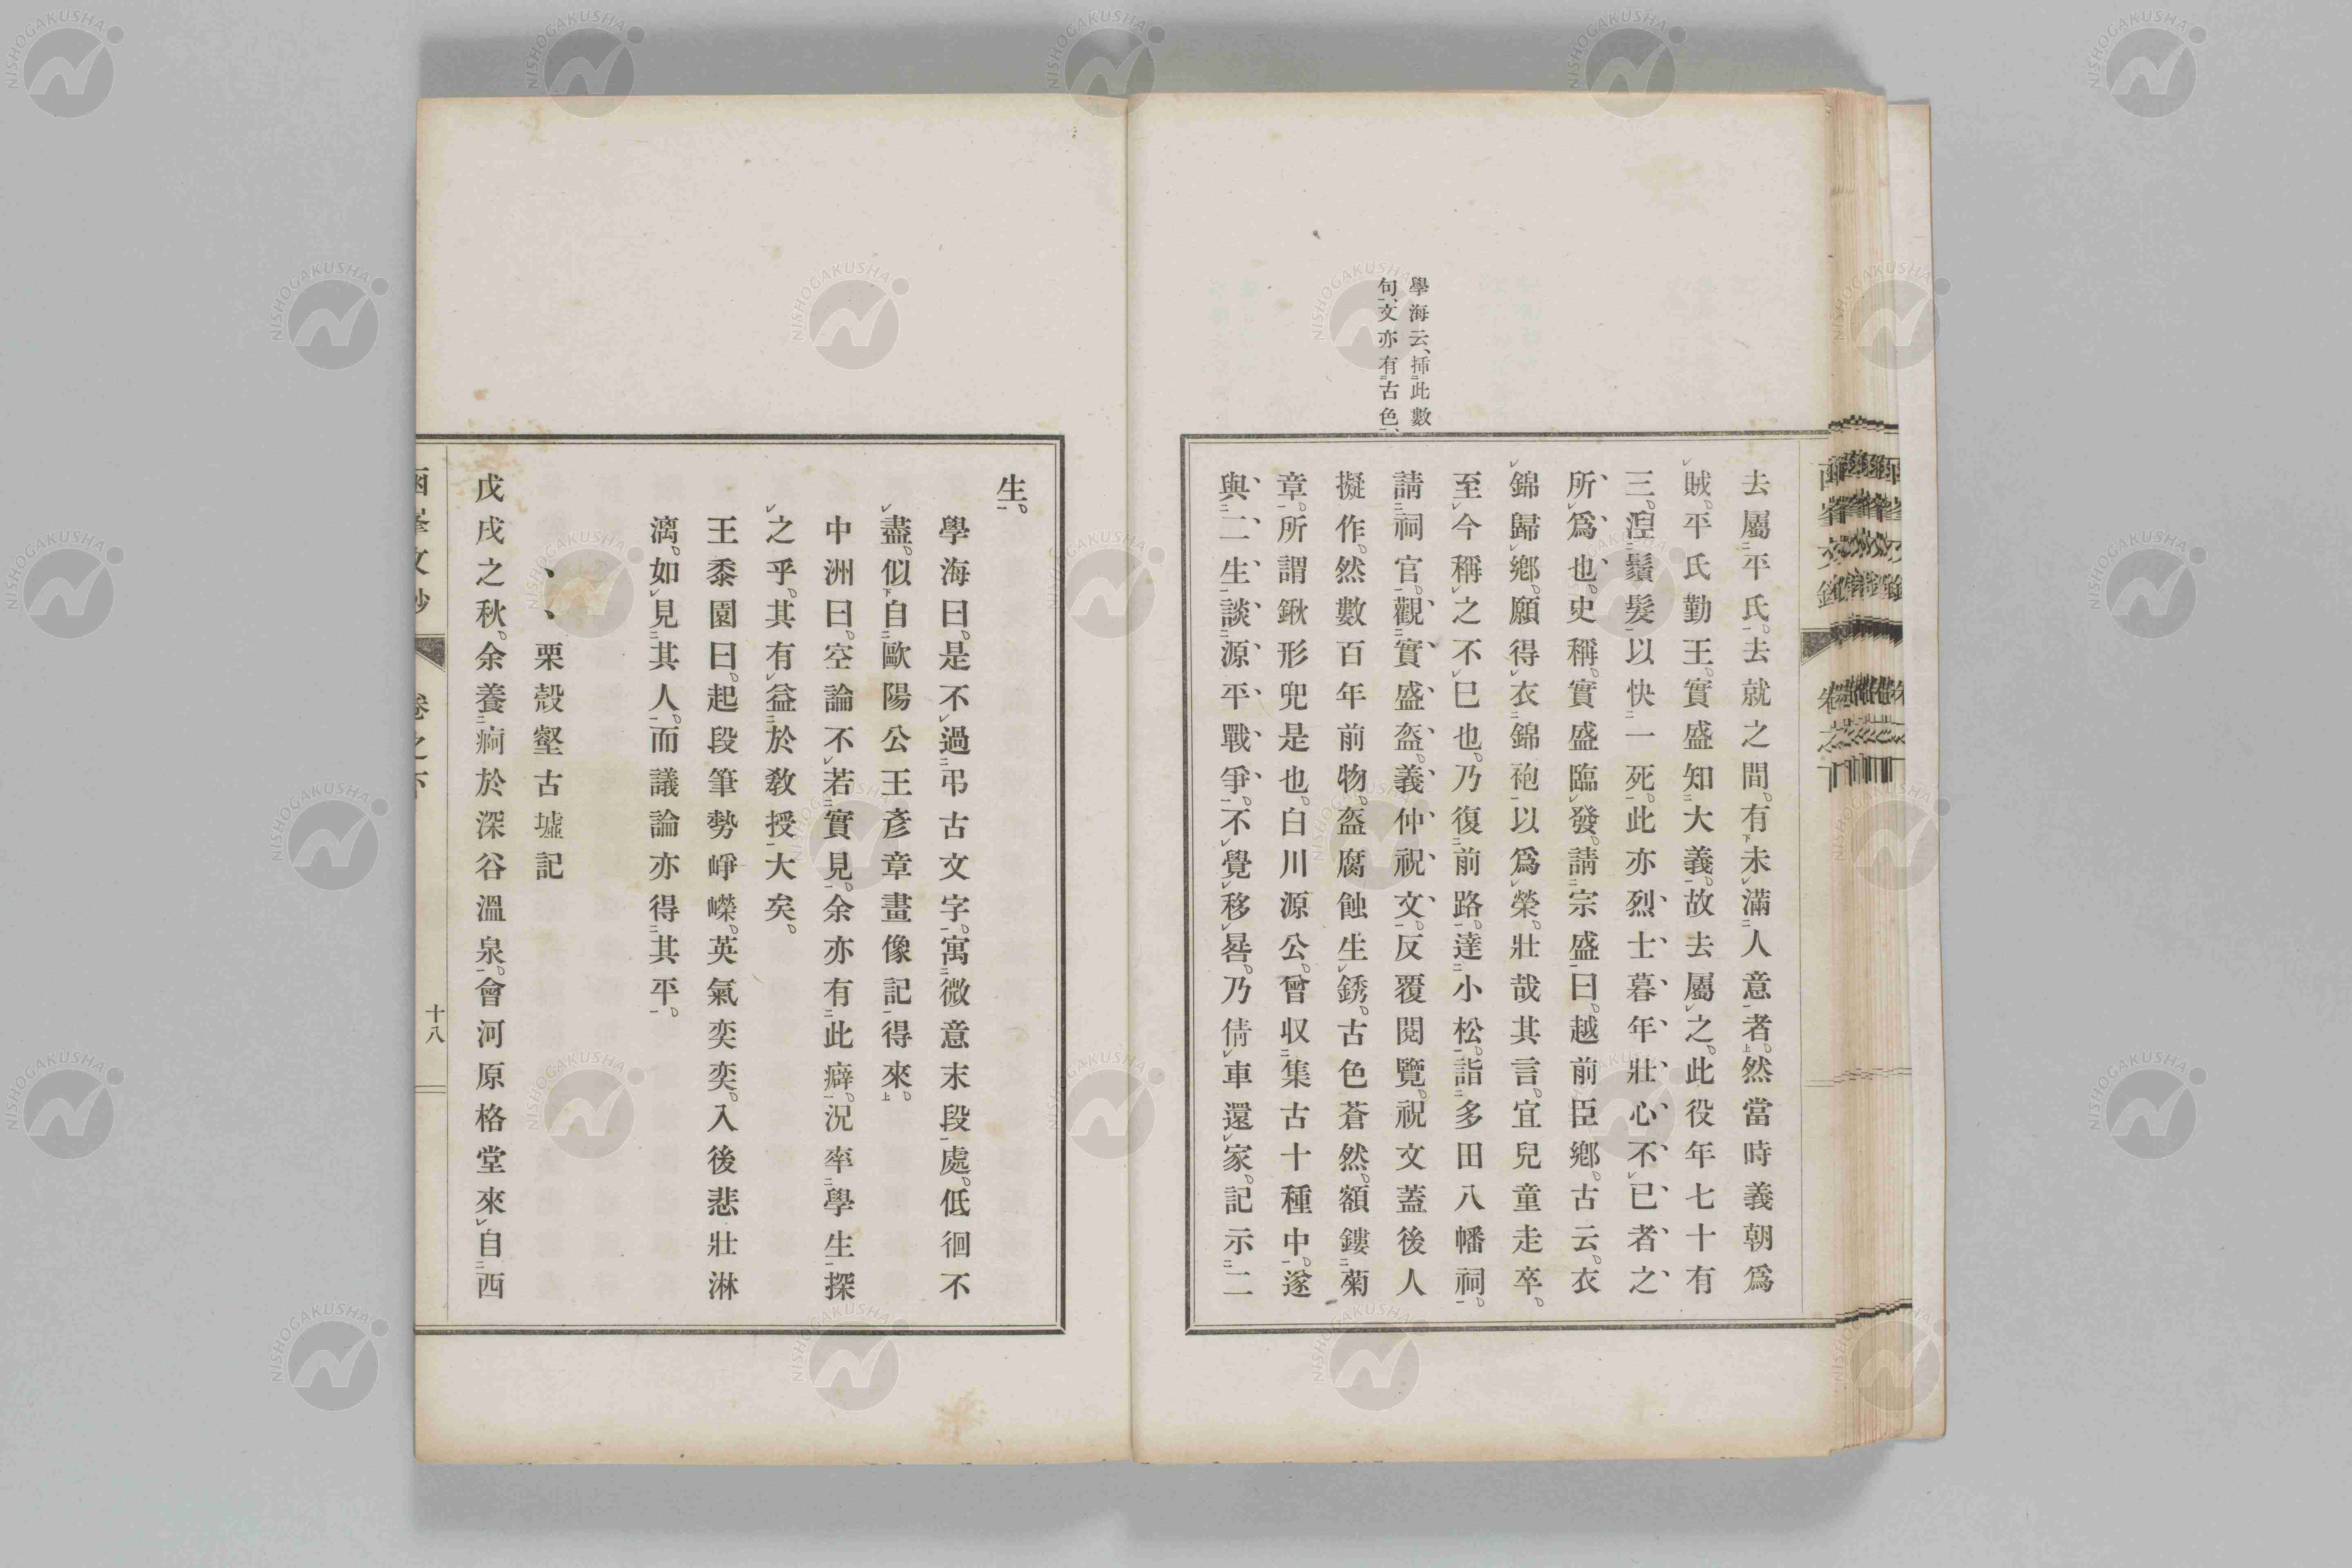 學海云、挿此數
句、文亦有古色、
去屬平氏。去就之間。有未滿人意者。然當時義朝爲
賊。平氏勤王。實盛知大義。故去屬之。此役年七十有
三。涅鬚髮以快一死。此亦烈士暮年壯心不已者之
所爲也。史稱。實盛臨發。請宗盛曰。越前臣鄕。古云。衣
錦歸鄕。願得衣錦袍以爲榮。壯哉其言。宜兒童走卒。
至今稱之不已也。乃復前路。達小松。詣多田八幡祠。
請祠官。觀實盛盔。義仲祝文。反覆閱覽。祝文蓋後人
擬作。然數百年前物。盔腐蝕生銹。古色蒼然。額鏤菊
章。所謂鍬形兜是也。白川源公。曾収集古十種中。遂
與二生談源平戰爭。不覺移晷。乃倩車還家。記示二
生。
學海曰。是不過弔古文字。寓微意末段處。低徊不
盡。似自歐陽公王彥章畫像記得來。
中洲曰。空論不若實見。余亦有此癖。況率學生探
之乎。其有益於敎授大矣。
王黍園曰。起段筆勢崢嶸。英氣奕奕。入後悲壯淋
漓。如見其人。而議論亦得其平。
栗殼壑古墟記
戊戌之秋。余養痾於深谷溫泉。會河原格堂來自西
卷之下
十八